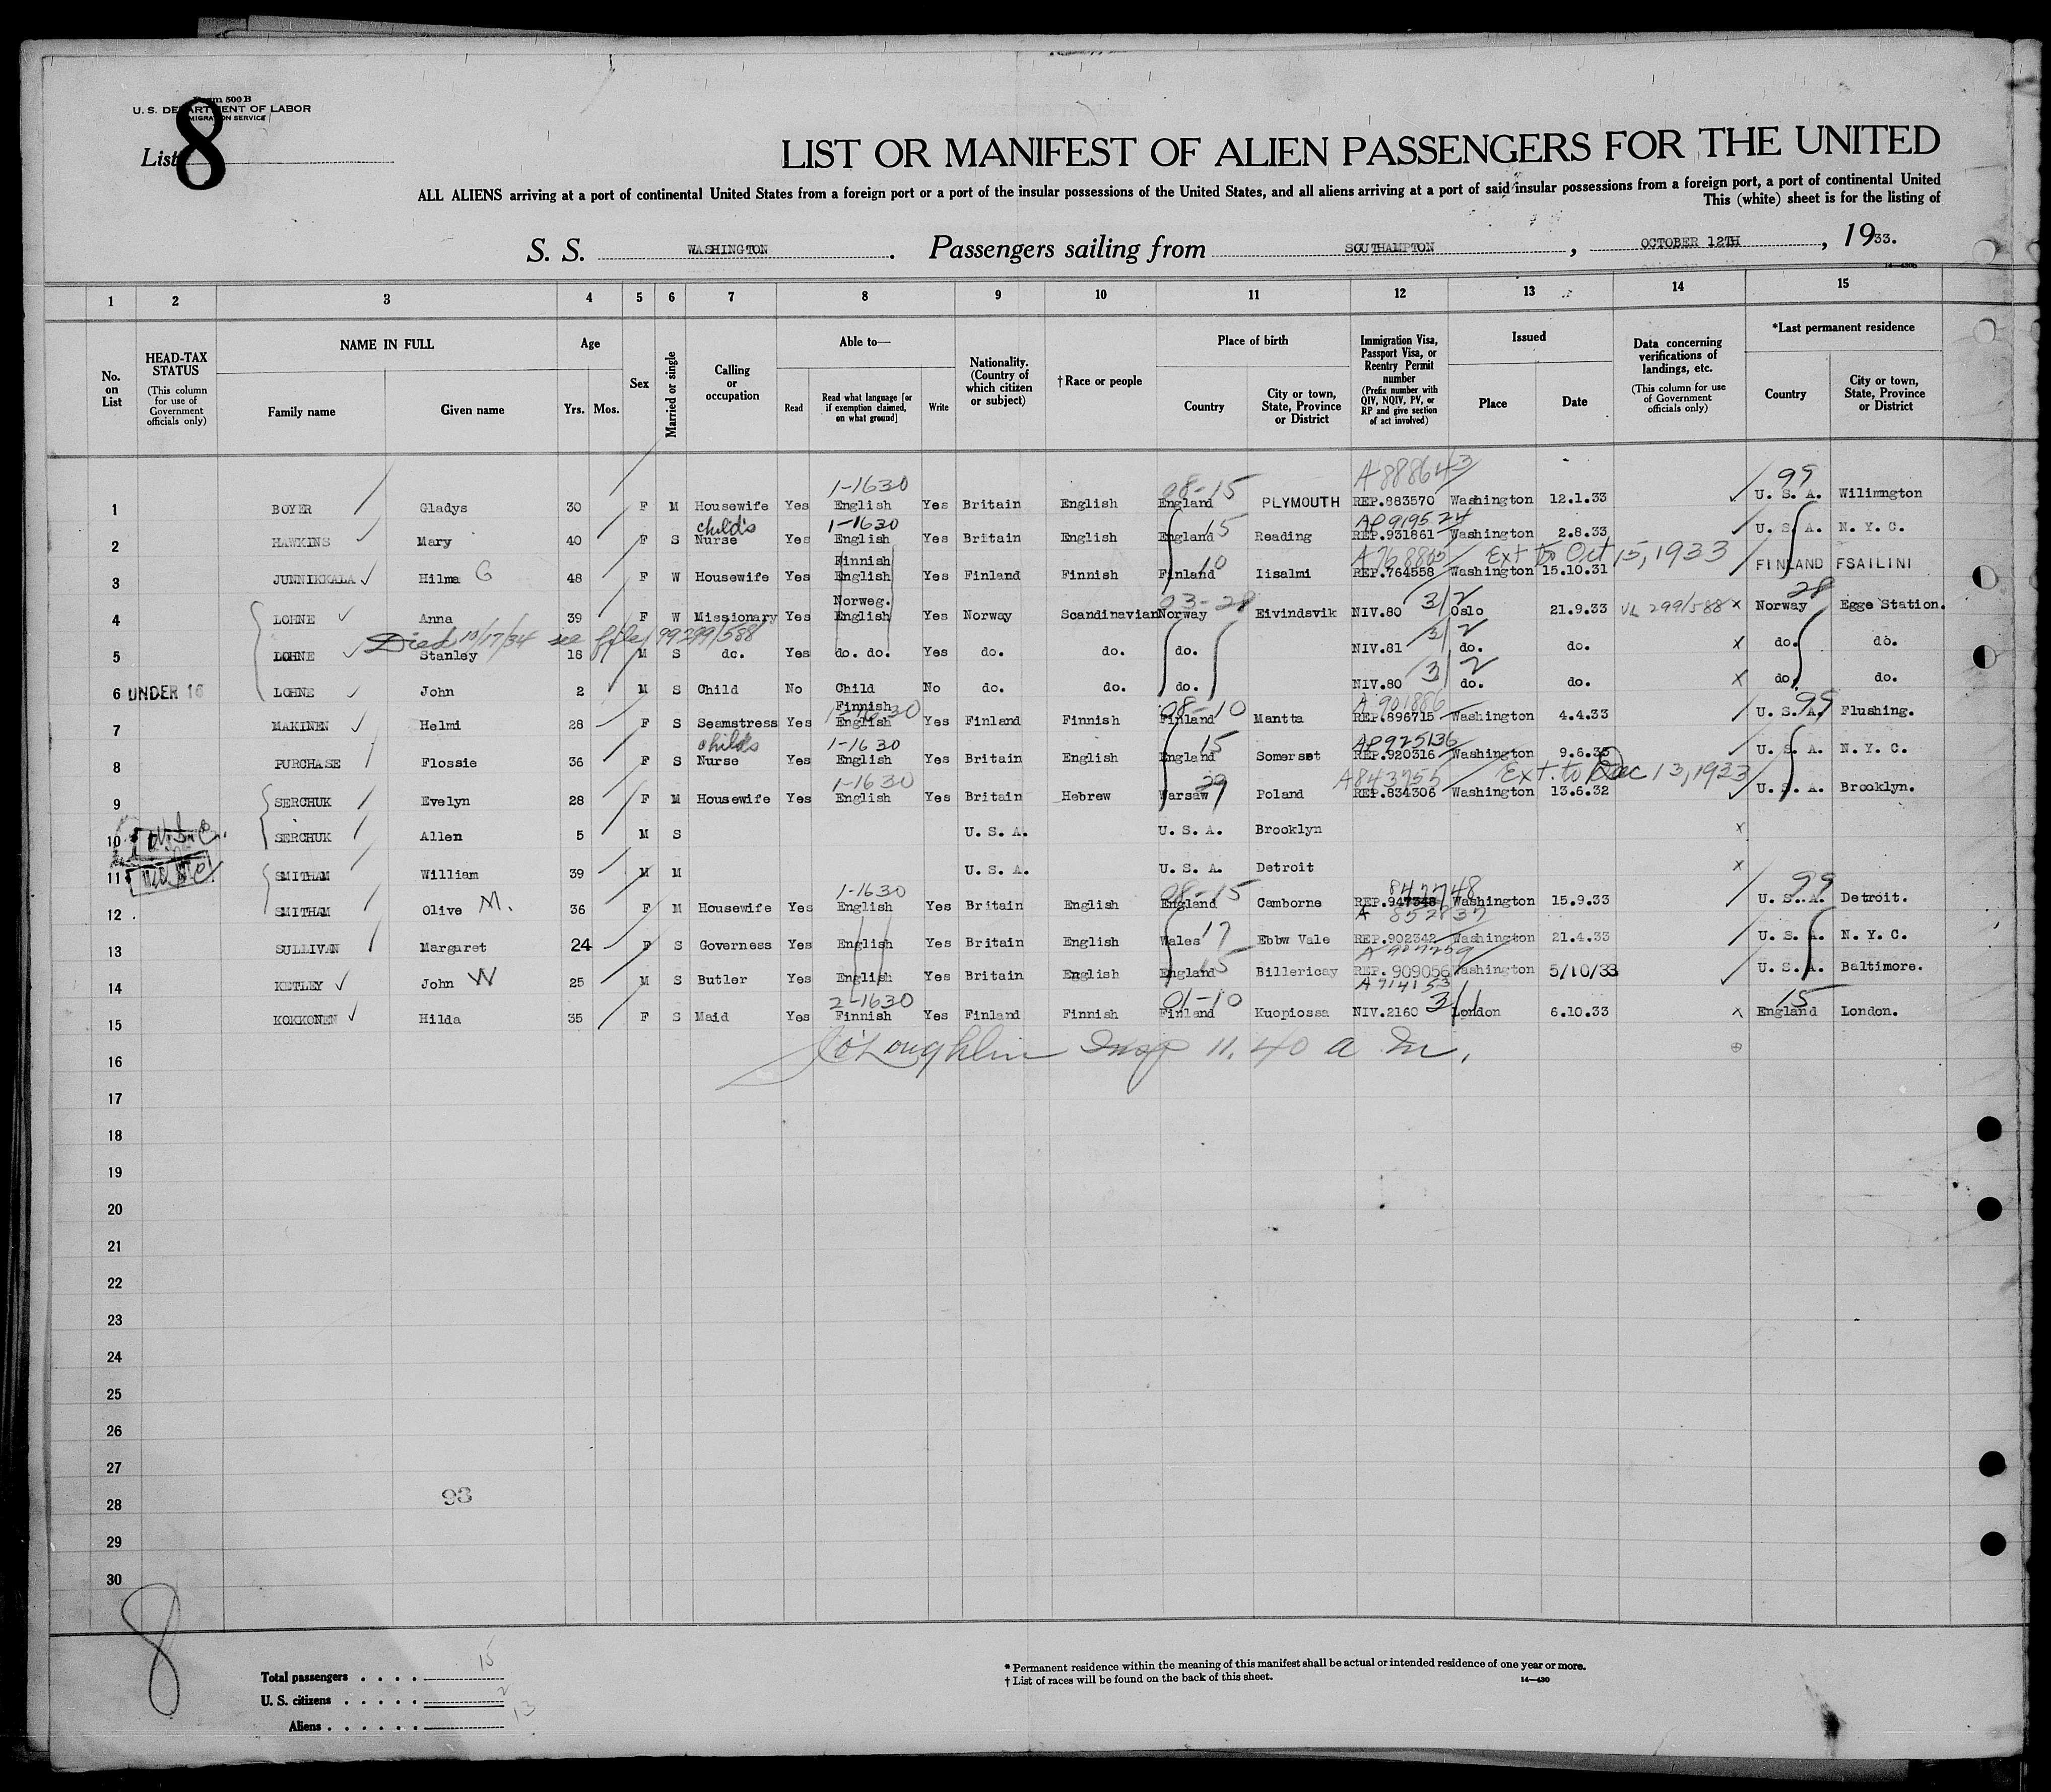 Form 500 B
U. S. DEPARTMENT OF LABOR
IMMIGRATION SERVICE
List 8
LIST OR MANIFEST OF ALIEN PASSENGERS FOR THE UNITED
ALL ALIENS arriving at a port of continental United States from a foreign port or a port of the insular possessions of the United States, and all aliens arriving at a port of said insular possessions from a foreign port, a port of continental United
This (white) sheet is for the listing of
S. S. WASHINGTON. Passengers sailing from SOUTHAMPTON, OCTOBER 12TH, 1933.
14—430b
1 2 3 4 5 6 7 8 9 10 11 12 13 14 15
No. on List
HEAD-TAX STATUS (This column for use of Government officials only)
NAME IN FULL Family name Given name
Age Yrs. Mos.
Sex
Married or single
Calling or occupation
Able to— Read Read what language [or if exemption claimed, on what ground] Write
Nationality. (Country of which citizen or subject)
†Race or people
Place of birth Country City or town, State, Province or District
Immigration Visa, Passport Visa, or Reentry Permit number (Prefix number with QIV, NQIV, PV, or RP and give section of act involved)
Issued Place Date
Data concerning verifications of landings, etc. (This column for use of Government officials only)
*Last permanent residence Country City or town, State, Province or District
1-1630 08-15 A888643 99
1 BOYER Gladys 30 F M Housewife Yes English Yes Britain English England PLYMOUTH REP.883570 Washington 12.1.33 U. S. A. Wilimngton
child's 1-1630 15 AP919524
2 HAWKINS Mary 40 F S Nurse Yes English Yes Britain English England Reading REP.931861 Washington 2.8.33 U. S. A. N. Y. C.
Finnish 10 A768805 Ext to Oct 15, 1933
3 JUNNIKKALA Hilma G 48 F W Housewife Yes English Yes Finland Finnish Finland Iisalmi REP.764558 Washington 15.10.31 FINLAND FSAILINI
Norweg. 03-28 3/2 28
4 LOHNE Anna 39 F W Missionary Yes English Yes Norway Scandinavian Norway Eivindsvik NIV.80 Oslo 21.9.33 VL 299/588 x Norway Egge Station.
Died 10/17/34 see file 99299/588 3/2
5 LOHNE Stanley 16 M S do. Yes do. do. Yes do. do. do. NIV.81 do. do. x do. do.
3/2
6 UNDER 16 LOHNE John 2 M S Child No Child No do. do. do. NIV.80 do. do. x do. do.
Finnish 1-1630 08-10 A 901886 99
7 MAKINEN Helmi 28 F S Seamstress Yes English Yes Finland Finnish Finland Mantta REP.896715 Washington 4.4.33 U. S. A. Flushing.
child's 1-1630 15 AP925136
8 PURCHASE Flossie 36 F S Nurse Yes English Yes Britain English England Somerset REP.920316 Washington 9.6.33 U. S. A. N. Y. C.
1-1630 29 A843755 Ext. to Dec 13, 1933
9 SERCHUK Evelyn 28 F M Housewife Yes English Yes Britain Hebrew Warsaw Poland REP.834306 Washington 13.6.32 U. S. A. Brooklyn.
10 SERCHUK Allen 5 M S U. S. A. U. S. A. Brooklyn x
11 SMITHAM William 39 M M U. S. A. U. S. A. Detroit x
1-1630 08-15 847748 99
12 SMITHAM Olive M. 36 F M Housewife Yes English Yes Britain English England Camborne REP.947348 Washington 15.9.33 U. S. A. Detroit.
17 A 852837
13 SULLIVAN Margaret 24 F S Governess Yes English Yes Britain English Wales Ebbw Vale REP.902342 Washington 21.4.33 U. S. A. N. Y. C.
15 A 907259
14 KETLEY John W 25 M S Butler Yes English Yes Britain English England Billericay REP. 909056 Washington 5/10/33 U. S. A. Baltimore.
2-1630 01-10 A714153 3/1 15
15 KOKKONEN Hilda 35 F S Maid Yes Finnish Yes Finland Finnish Finland Kuopiossa NIV.2160 London 6.10.33 x England London.
O'Loughlin Insp 11.40 a m.
16
17
18
19
20
21
22
23
24
25
26
27
28 93
29
30
8
Total passengers . . . . 15
U. S. citizens . . . . . 2
Aliens . . . . . . 13
* Permanent residence within the meaning of this manifest shall be actual or intended residence of one year or more.
† List of races will be found on the back of this sheet.
14—430